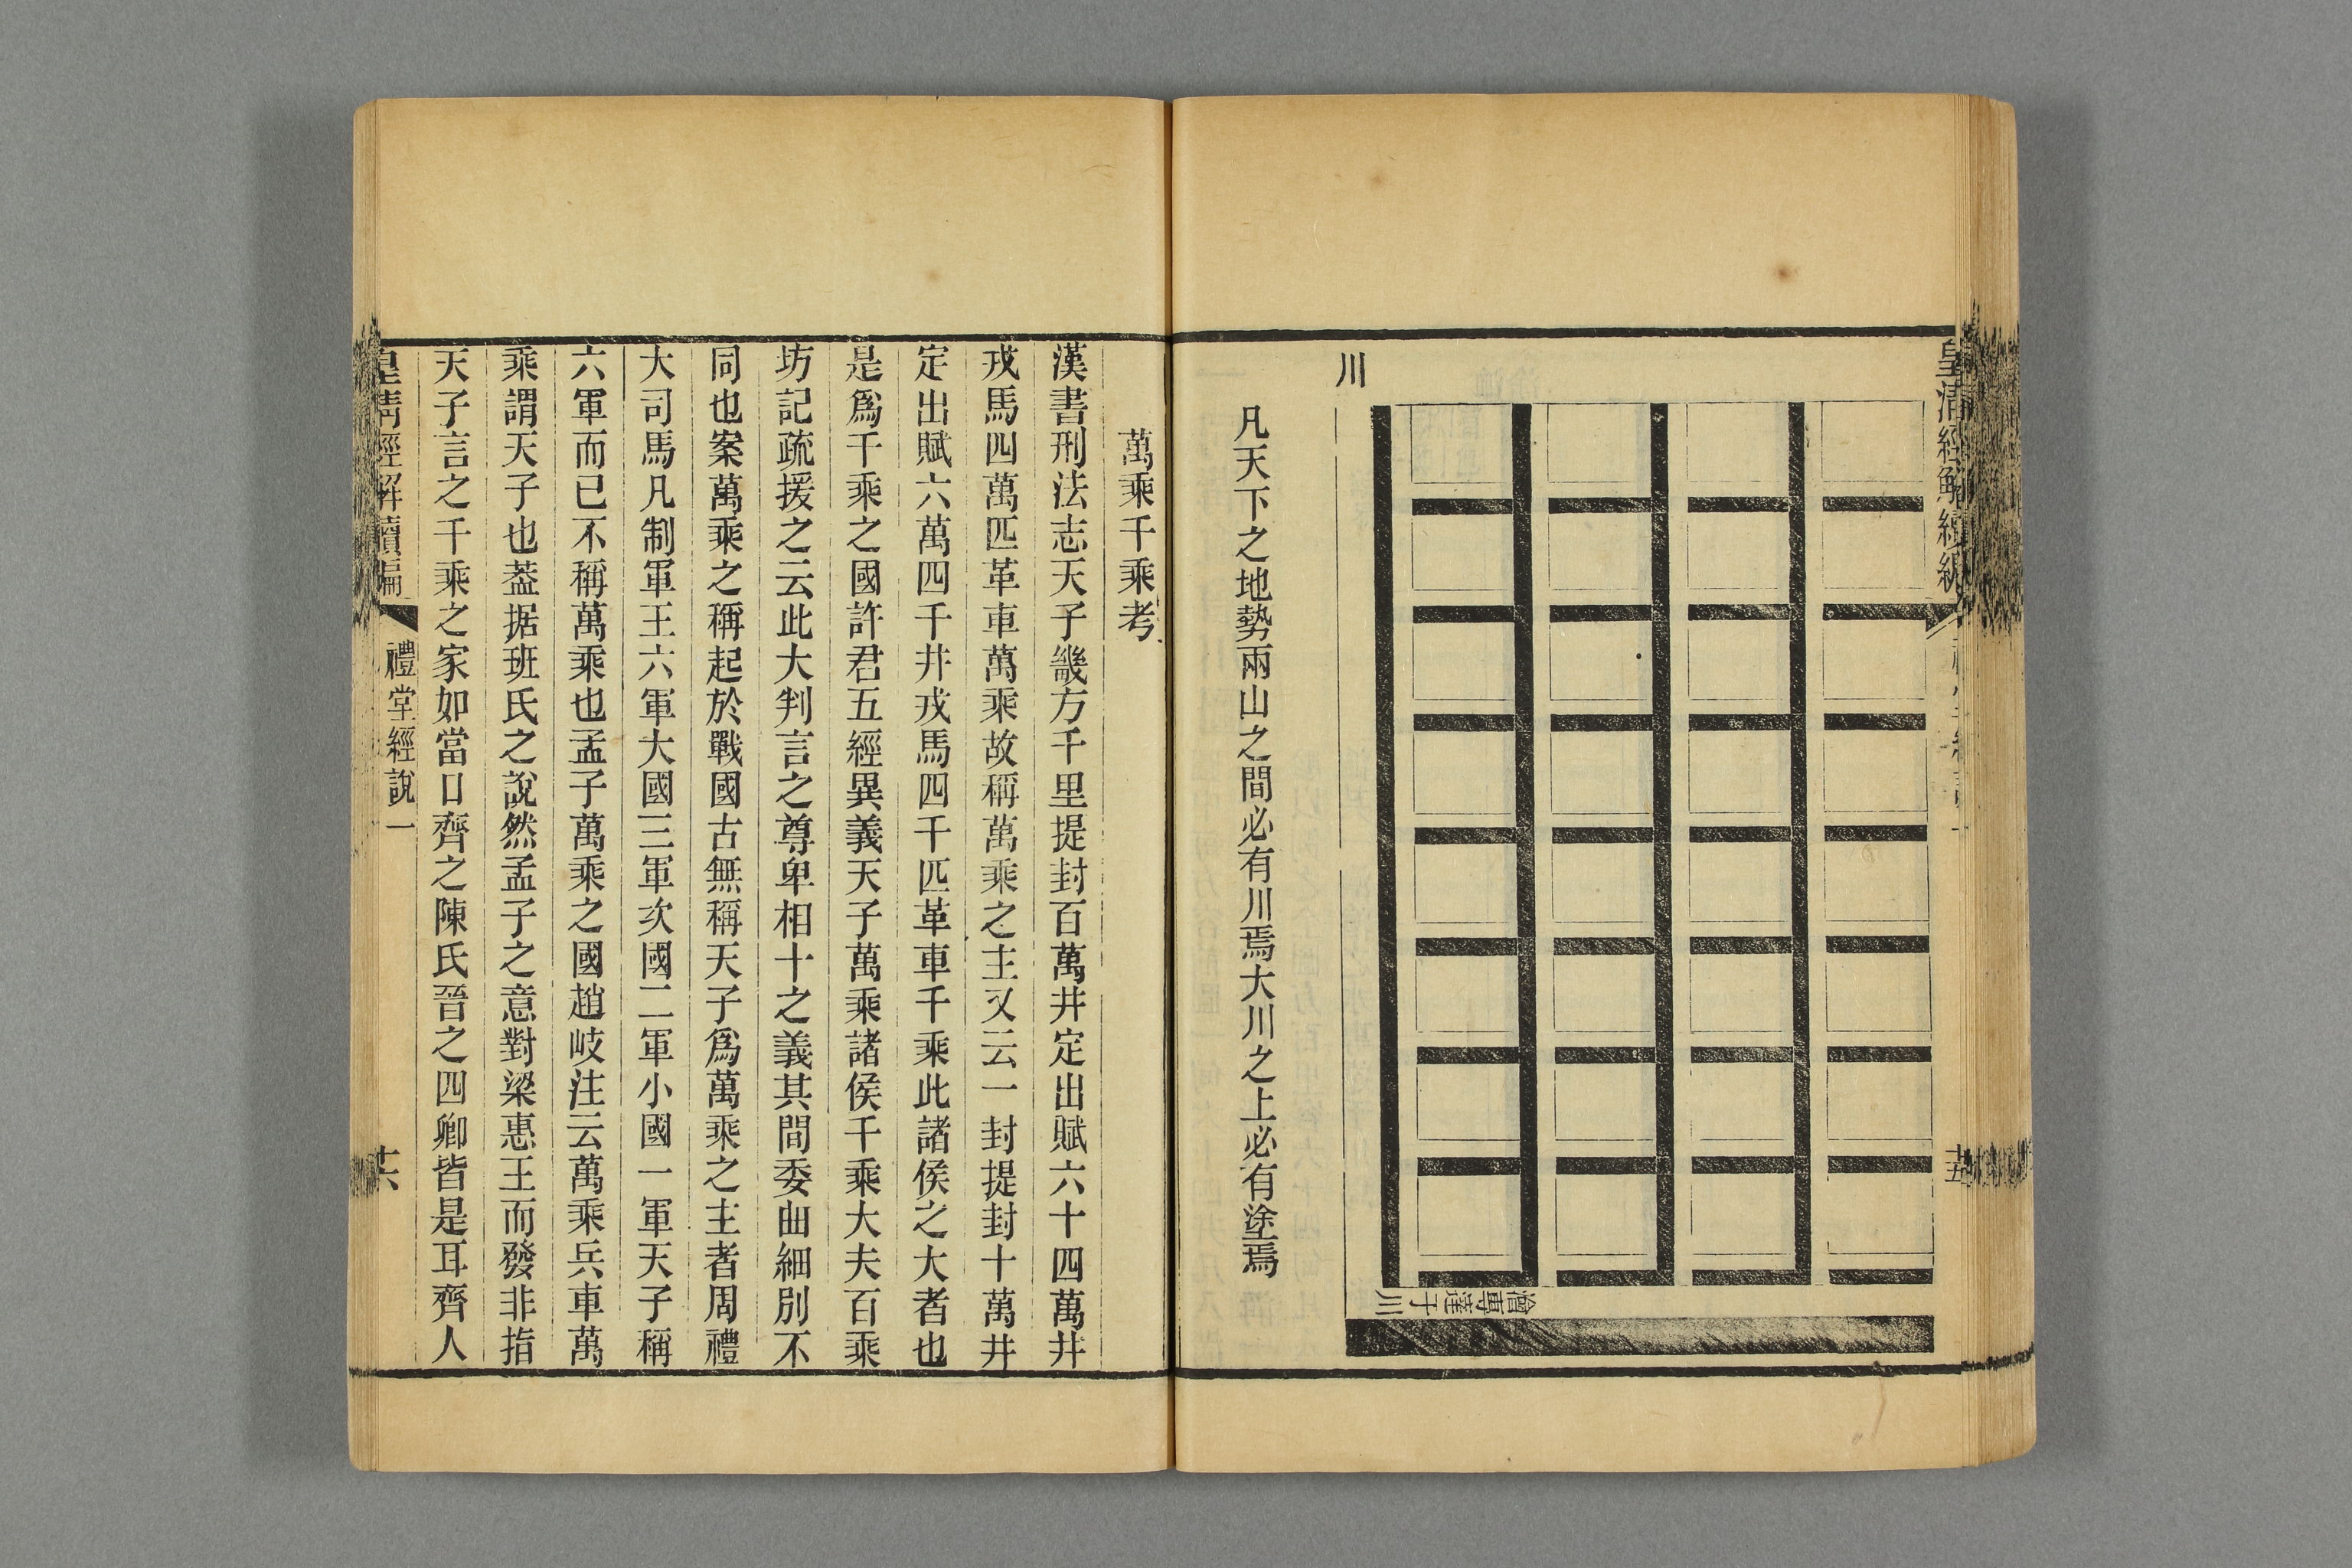 皇清經解續編
十五
川
澮專達于川
凡天下之地勢兩山之間必有川焉大川之上必有塗焉
萬乘千乘考
漢書刑法志天子畿方千里提封百萬井定出賦六十四萬井
戎馬四萬匹革車萬乘故稱萬乘之主又云一封提封十萬井
定出賦六萬四千井戎馬四千匹革車千乘此諸侯之大者也
是爲千乘之國許君五經異義天子萬乘諸侯千乘大夫百乘
坊記疏援之云此大判言之尊卑相十之義其間委曲細別不
同也案萬乘之稱起於戰國古無稱天子爲萬乘之主者周禮
大司馬凡制軍王六軍大國三軍次國二軍小國一軍天子稱
六軍而已不稱萬乘也孟子萬乘之國趙岐注云萬乘兵車萬
乘謂天子也葢据班氏之說然孟子之意對梁惠王而發非指
天子言之千乘之家如當日齊之陳氏晉之四卿皆是耳齊人
皇清經解續編
禮堂經說一
十六